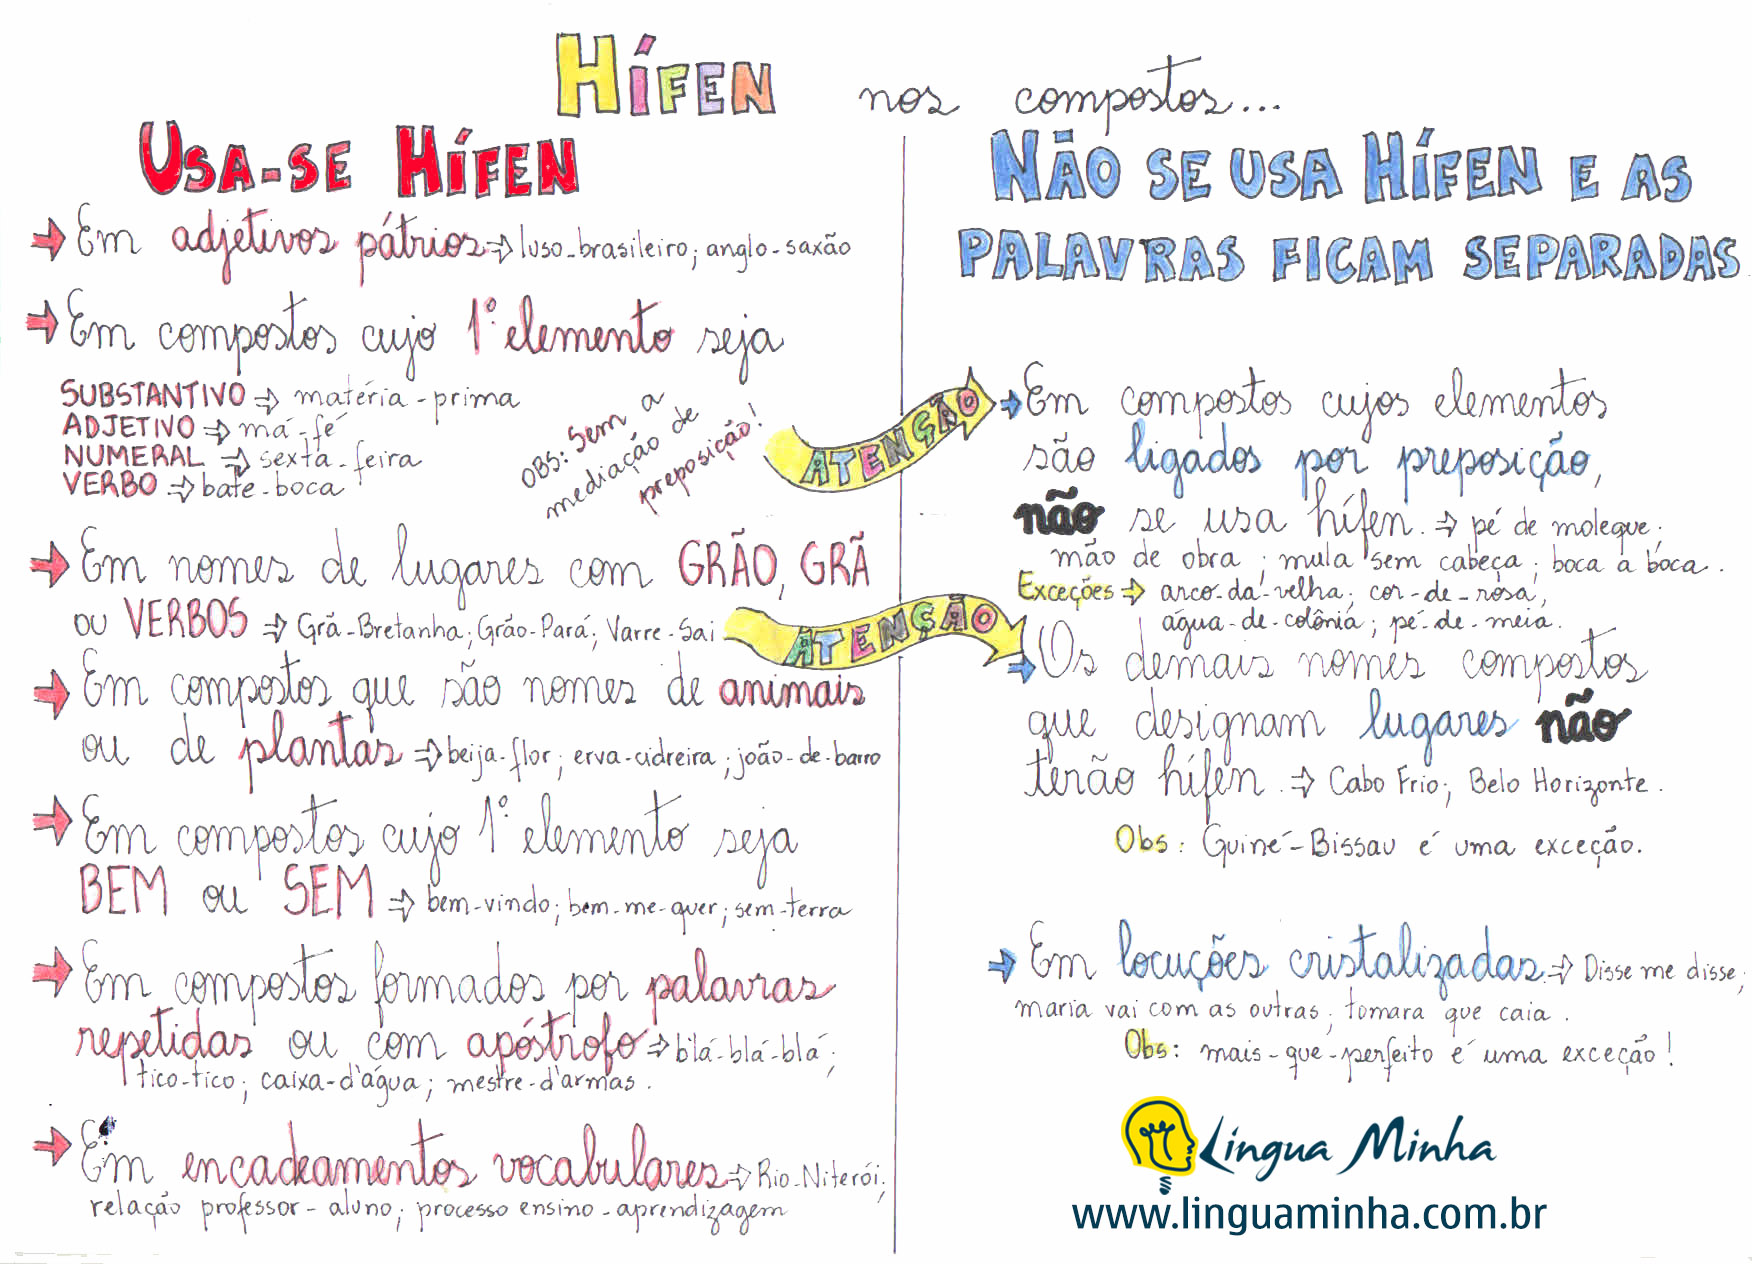 HÍFEN nos compostos...
USA-SE HÍFEN
➔ Em adjetivos pátrios ⇒ luso-brasileiro; anglo-saxão
➔ Em compostos cujo 1º elemento seja
SUBSTANTIVO ⇒ matéria-prima
ADJETIVO ⇒ má-fé
NUMERAL ⇒ sexta-feira
VERBO ⇒ bate-boca
OBS: Sem a
mediação de
preposição!
ATENÇÃO
➔ Em nomes de lugares com GRÃO, GRÃ
ou VERBOS ⇒ Grã-Bretanha; Grão-Pará; Varre-Sai
ATENÇÃO
➔ Em compostos que são nomes de animais
ou de plantas ⇒ beija-flor; erva-cidreira; joão-de-barro
➔ Em compostos cujo 1º elemento seja
BEM ou SEM ⇒ bem-vindo; bem-me-quer; sem-terra
➔ Em compostos formados por palavras
repetidas ou com apóstrofo ⇒ blá-blá-blá;
tico-tico; caixa-d'água; mestre-d'armas.
➔ Em encadeamentos vocabulares ⇒ Rio-Niterói;
relação professor-aluno; processo ensino-aprendizagem
NÃO SE USA HÍFEN E AS
PALAVRAS FICAM SEPARADAS
➔ Em compostos cujos elementos
são ligados por preposição,
não se usa hífen. ⇒ pé de moleque;
mão de obra; mula sem cabeça; boca a boca.
Exceções ⇒ arco-da-velha; cor-de-rosa,
água-de-colônia; pé-de-meia.
➔ Os demais nomes compostos
que designam lugares não
terão hífen. ⇒ Cabo Frio; Belo Horizonte.
Obs: Guiné-Bissau é uma exceção.
➔ Em locuções cristalizadas ⇒ Disse me disse;
maria vai com as outras; tomara que caia.
Obs: mais-que-perfeito é uma exceção!
Língua Minha
www.linguaminha.com.br